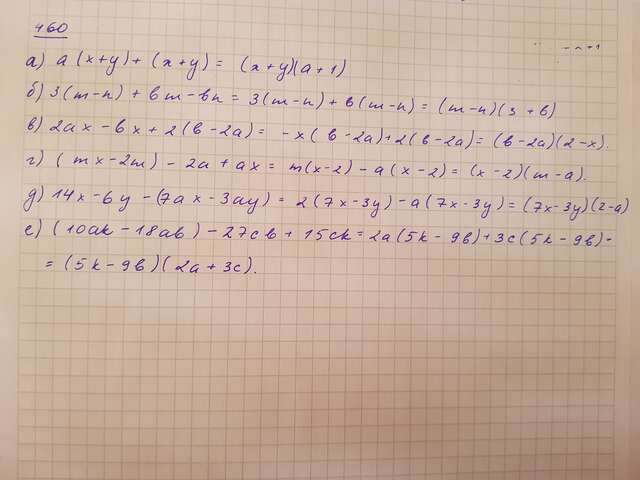 460
а) a(x+y)+(x+y)=(x+y)(a+1)
б) 3(m-n)+bm-bn=3(m-n)+b(m-n)=(m-n)(3+b)
в) 2ax-bx+2(b-2a)=-x(b-2a)+2(b-2a)=(b-2a)(2-x).
г) (mx-2m)-2a+ax=m(x-2)-a(x-2)=(x-2)(m-a).
д) 14x-6y-(7ax-3ay)=2(7x-3y)-a(7x-3y)=(7x-3y)(2-a)
е) (10ak-18ab)-27cb+15ck=2a(5k-9b)+3c(5k-9b)=
=(5k-9b)(2a+3c).